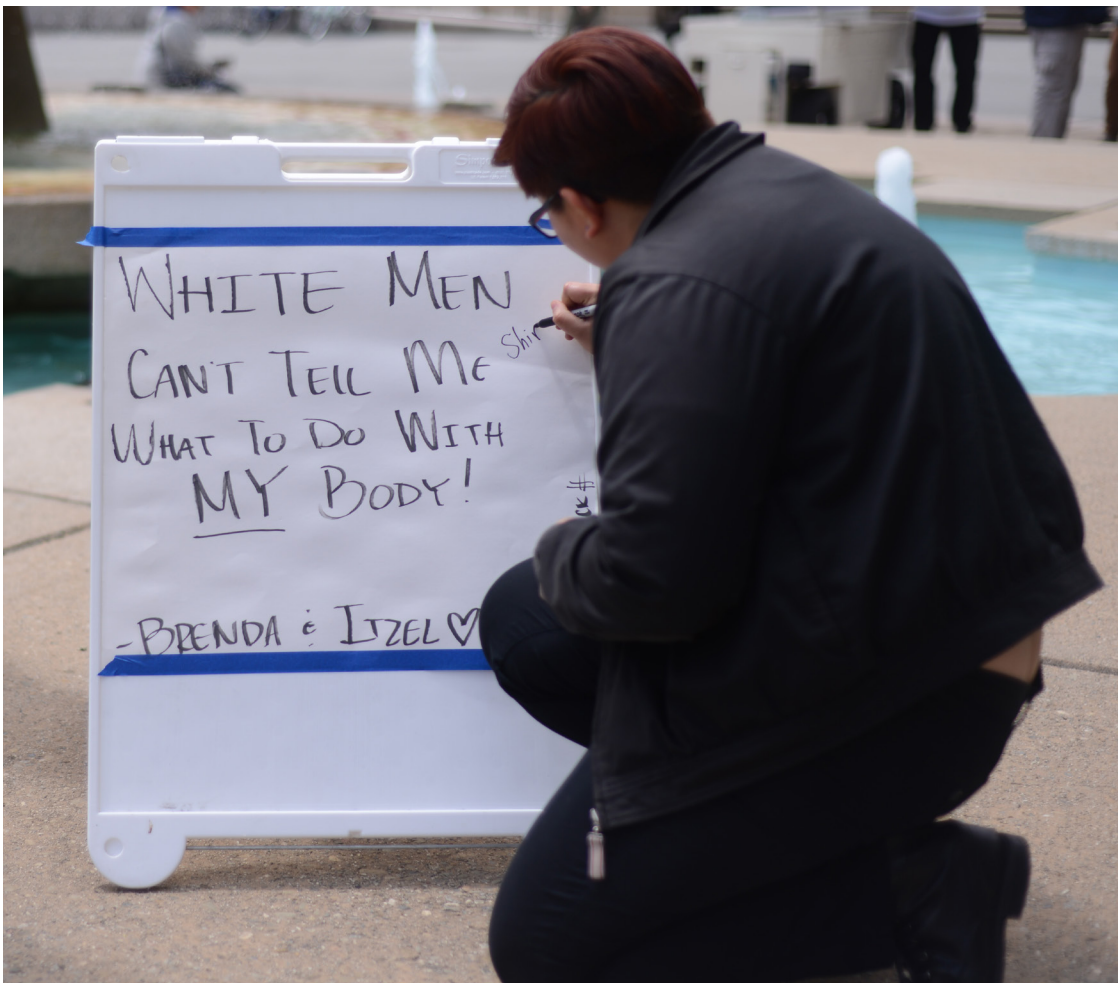 WHITE MEN
CAN'T TELL ME
WHAT TO DO WITH
MY BODY!
-BRENDA & ITZEL♡